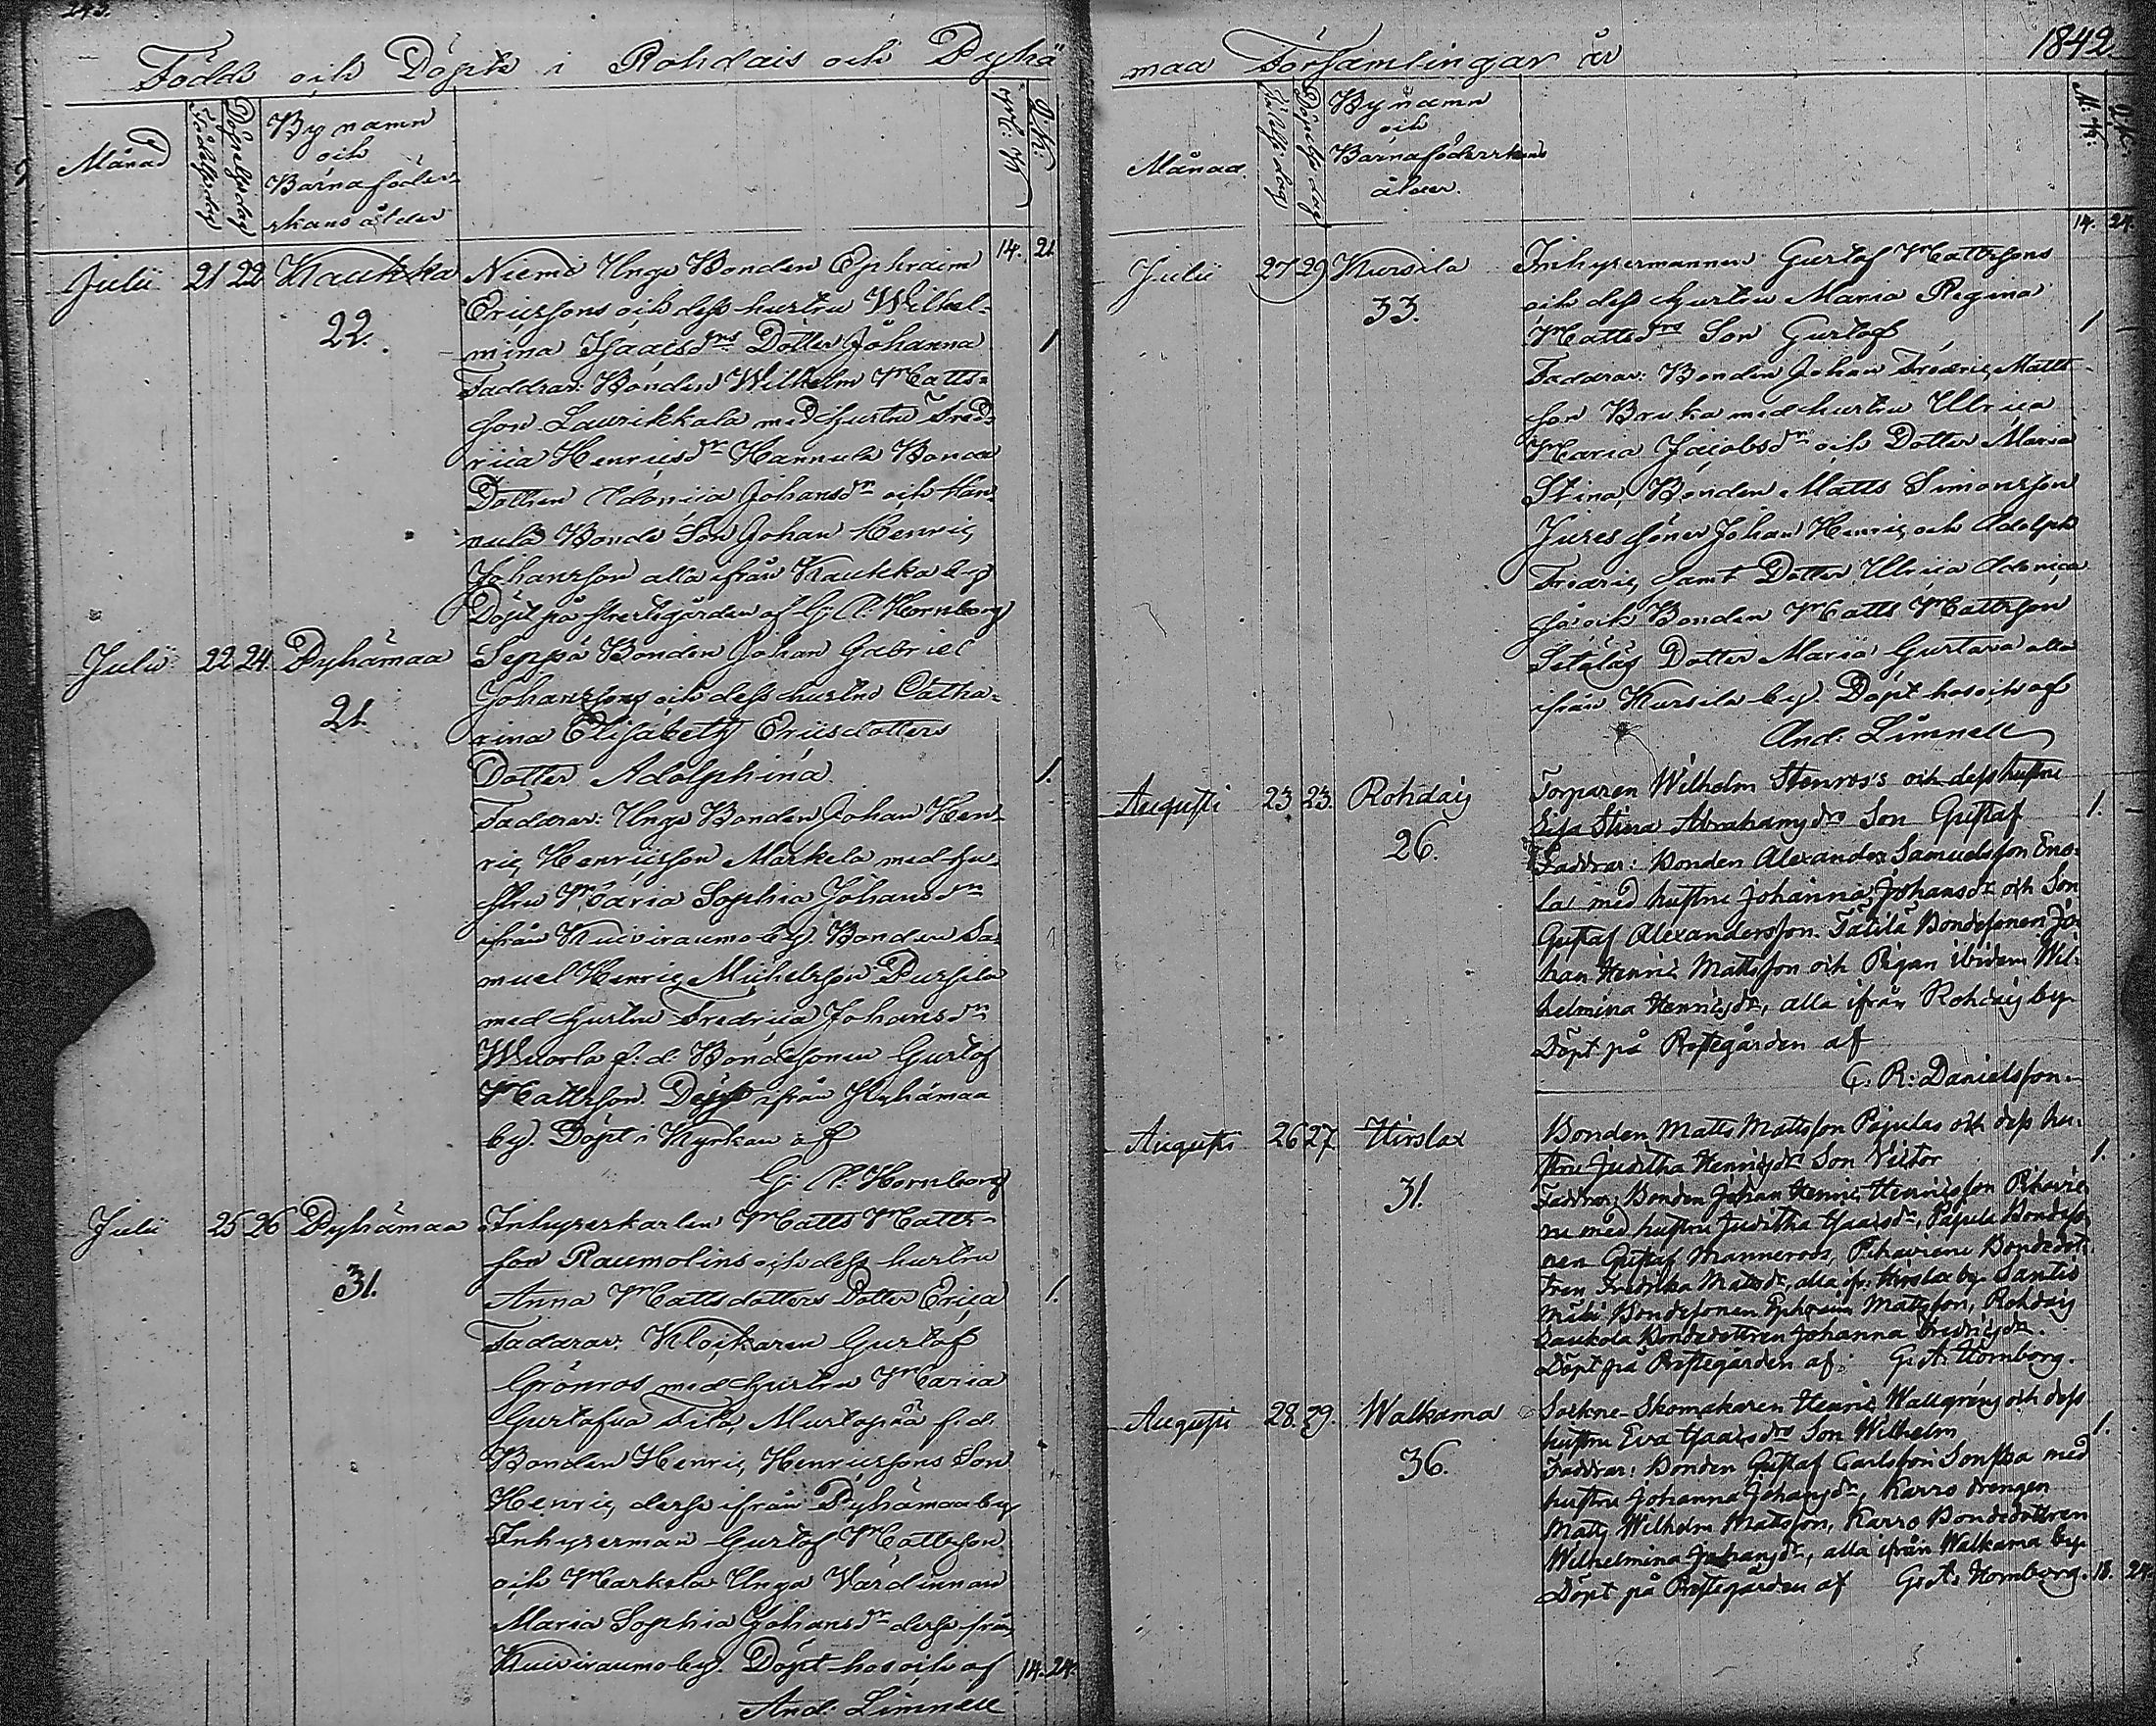 243.
Födde och Döpte i Rohdais och Pyhä
Månad
Födelsedag
Döpelsedag
Bynamn
och
Barnaföder-
skans ålder
M: K:
Q: K:
14. 21
Julii 21 22 Kaukka
22.
Niemi Unge Bonden Ephraim
Ericssons och dess hustru Wilhel-
mina Isaacsdrs Dotter Johanna 1
Faddrar: Bonden Wilhelm Matts-
son Laurikkala med hustru Fred-
rica Henricsdr Hannula Bonde
Dottren Adonica Johansdr och Han
nula Bonde Son Johan Henric
Johansson alla ifrån Kaukka by
Döpt på Prestgården af G: A: Hornborg
Julii 22 24. Pyhämaa
21.
Seppä Bonden Johan Gabriel
Johanssons och dess hustru Catha-
rina Elisabeth Ericsdotters
Dotter Adolphina 1.
Faddrar: Unge Bonden Johan Hen-
ric Henricsson Markela med hu-
stru Maria Sophia Johansdr
ifrån Kuiviraumo by. Bonden Sa-
muel Henric Michelsson Pursila
med hustru Fredrica Johansdr
Wuorla f: d: Bondesonen Gustaf
Mattsson ifrån Pyhämaa
by. Döpt i Kyrkan af
G: A: Hornborg
Julii 25 26 Pyhämaa
31.
Inhysekarlen Matts Matts-
son Raumolins och dess hustru
Anna Mattsdotters Dotter Erica 1.
Faddrar: Klockaren Gustaf
Grönros med hustru Maria
Gustafva Murtopää f. d.
Bonden Henric Henricssons Son
Henric, desse ifrån Pyhämaa by
Inhyserman Gustaf Mattsson
och Markela Unga Värdinnan
Maria Sophia Johansdr desse från
Kuiviraumo by. Döpt hos och af
And: Limnell
14. 24.
maa Församlingar år 1842
Månad.
Födelse dag
Döpelse dag
Bynamn
och
Barnaföderskans
ålder.
M: K:
Q: K:
14. 24.
Julii 27 29 Kursila
33.
Inhysermannen Gustaf Mattssons
och dess hustru Maria Regina
Mattsdrs Son Gustaf 1
Faddrar: Bonden Johan Fredric Matts-
son Bruka med hustru Ulrica
Maria Jacobsdr och Dotter Maria
Stina, Bonden Matts Simonsson
Jures söner Johan Henric och Adolph
Fredric samt Dotter Ulrica Adonica
så och Bonden Matts Mattsson
Sitäläs Dotter Maria Gustava alla
ifrån Kursila by. Döpt hos och af
And: Limnell
Augusti 23 23. Rohdais
26.
Torparen Wilhelm Stenros's och dess hustru
Lisa Stina Abrahamsdrs Son Gustaf 1.
Faddrar: Bonden Alexander Samuelsson Eno-
la med hustru Johanna Johansdr och Son
Gustaf Alexandersson. Tätilä Bondesonen Jo-
han Henric Mattsson och Pigan ibidem Wil-
helmina Henricsdr, alla ifrån Rohdais by.
Döpt på Prestegården af
C: R: Danielsson.
Augusti 26 27. Hirslax
31.
Bonden Matts Mattsson Papulas och dess hu-
stru Juditha Henricsdrs Son Victor 1.
Faddrar: Bonden Johan Henric Henricsson Pihavie-
nu med hustru Juditha Isacsdr, Papula Bondeso-
nen Gustaf Manneroos, Pihavieni Bondedot-
tren Fredrika Mattsdr alla ifr. Hirslax by. Santio
Mäki Bondesonen Ephraim Mattsson, Rohdais
Laukola Bondedottren Johanna Fredricsdr.
Döpt på Prestegården af G: A: Hornborg.
Augusti 28. 29. Walkama
36.
Sockne-Skomakaren Henric Wallgréns och dess
hustru Eva Isaacsdrs Son Wilhelm 1.
Faddrar: Bonden Gustaf Carlsson med
hustru Johanna Johansdr, Karro drengen
Matts Wilhelm Mattsson, Karro Bondedottren
Wilhelmina Johansdr, alla ifrån Walkama by.
Döpt på Prestegården af G: A: Hornborg. 18. 24.